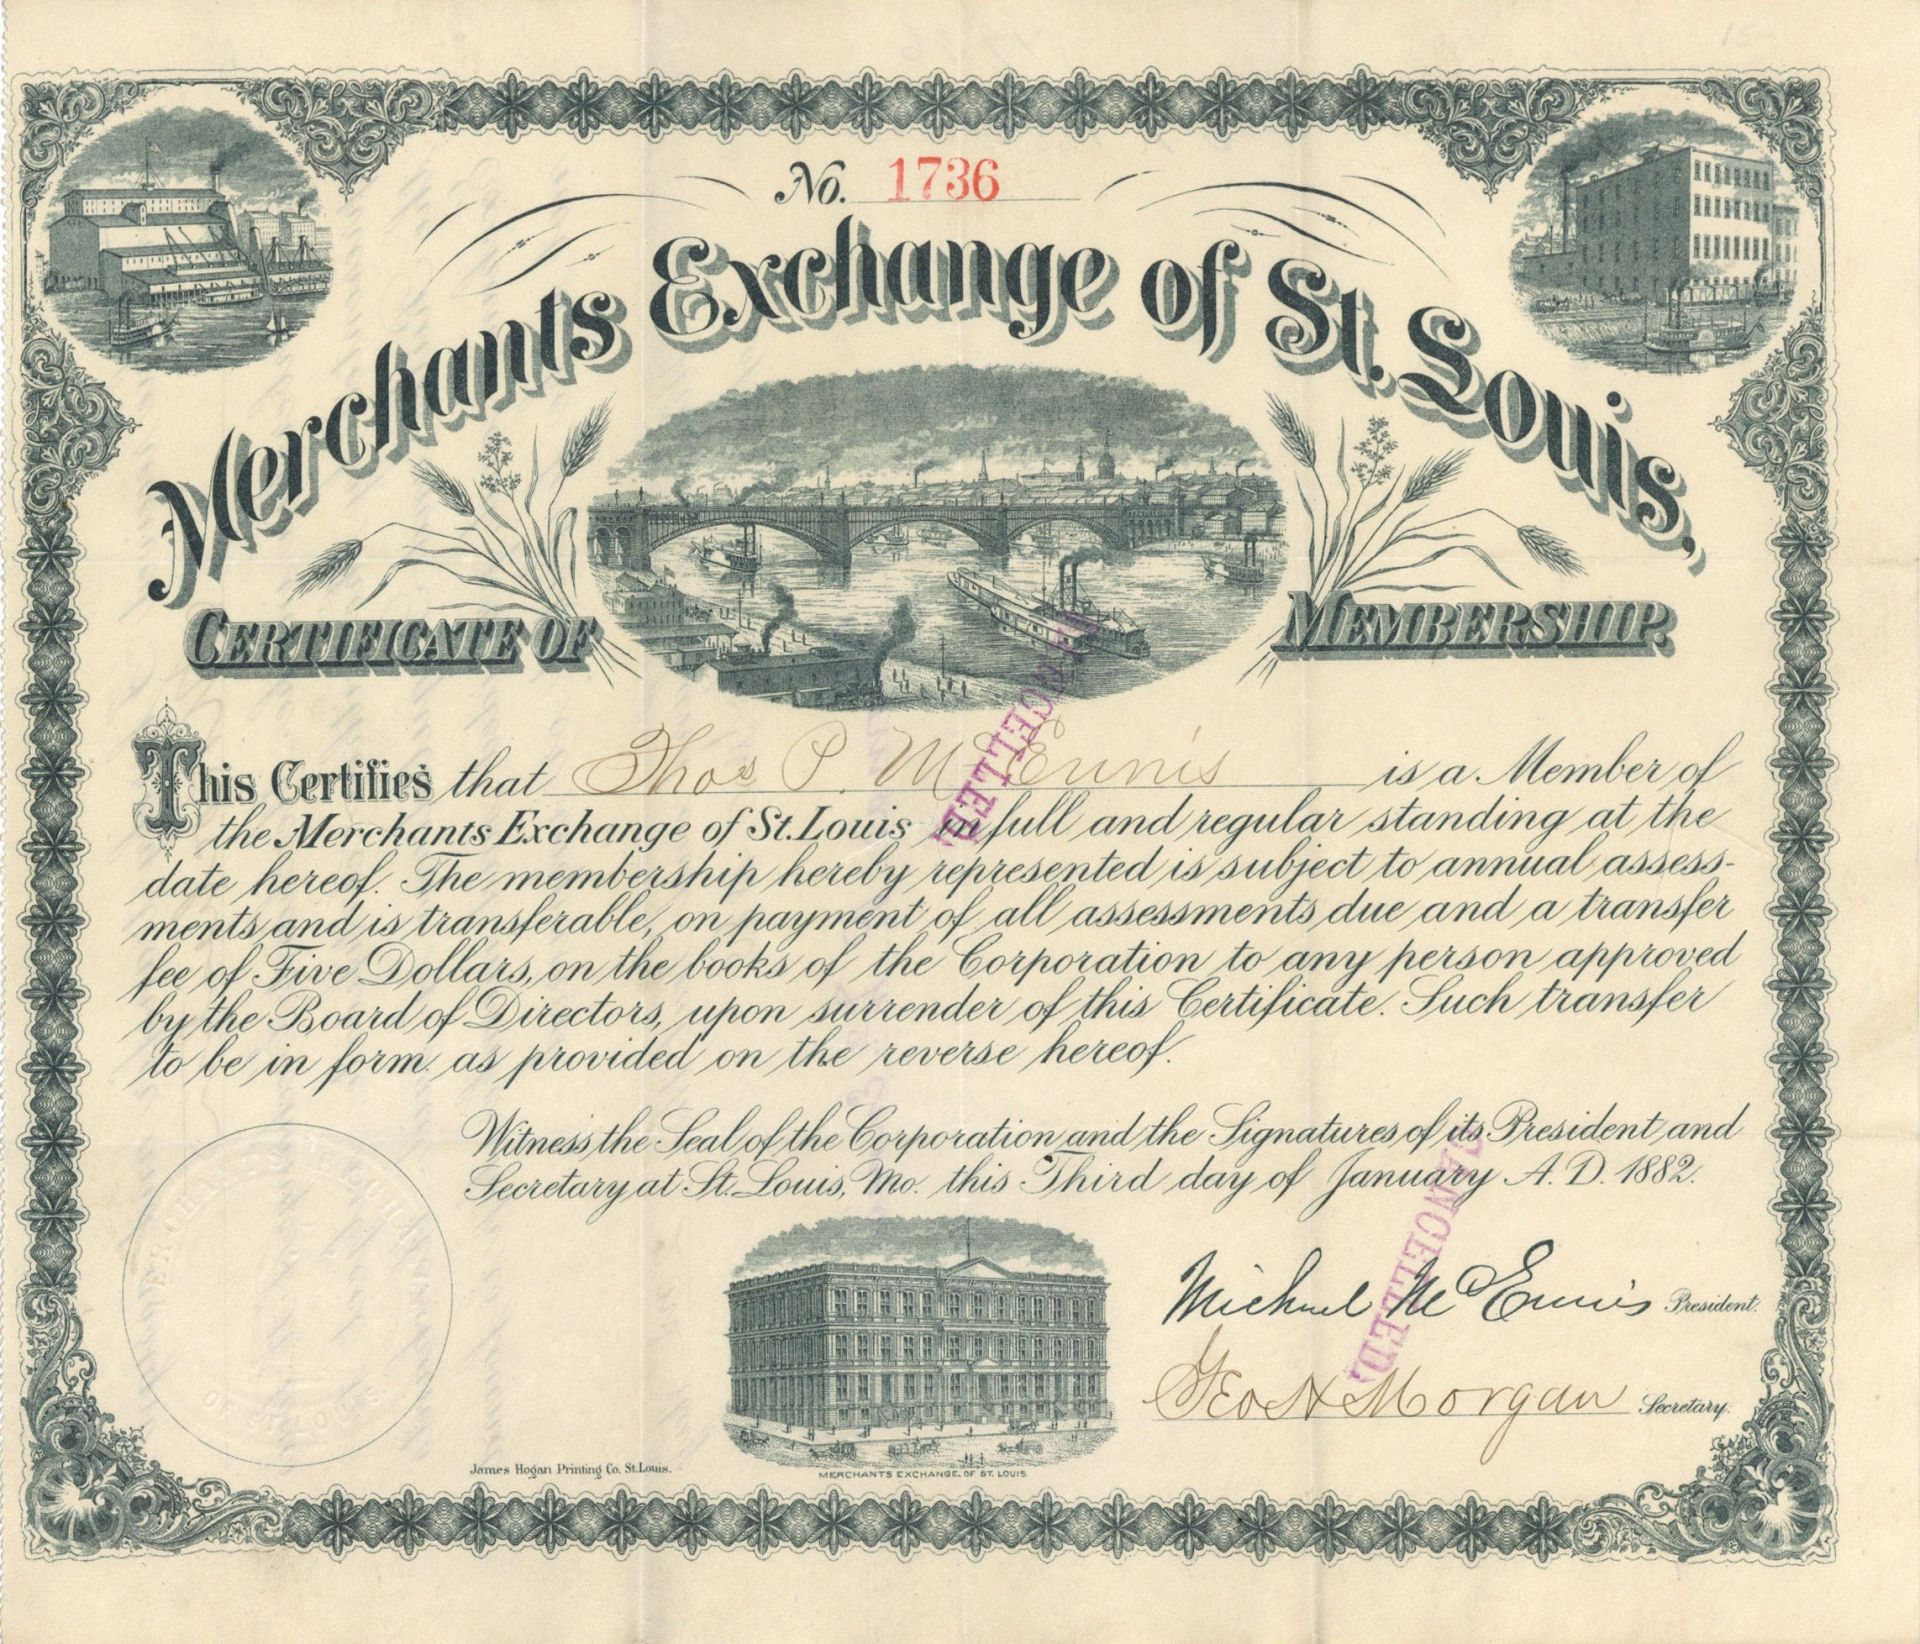 No. 1736
Merchants Exchange of St. Louis,
CERTIFICATE OF MEMBERSHIP.
This Certifies that Thos P. McEnnis is a Member of
the Merchants Exchange of St. Louis in full and regular standing at the
date hereof. The membership hereby represented is subject to annual assess-
ments and is transferable, on payment of all assessments due and a transfer
fee of Five Dollars, on the books of the Corporation to any person approved
by the Board of Directors, upon surrender of this Certificate. Such transfer
to be in form as provided on the reverse hereof.
Witness the Seal of the Corporation and the Signatures of its President and
Secretary at St. Louis, Mo. this Third day of January A. D. 1882.
Michael McEnnis President.
Geo H Morgan Secretary.
MERCHANTS EXCHANGE
OF ST. LOUIS
James Hogan Printing Co. St. Louis.
MERCHANTS EXCHANGE, OF ST. LOUIS.
CANCELLED
CANCELLED